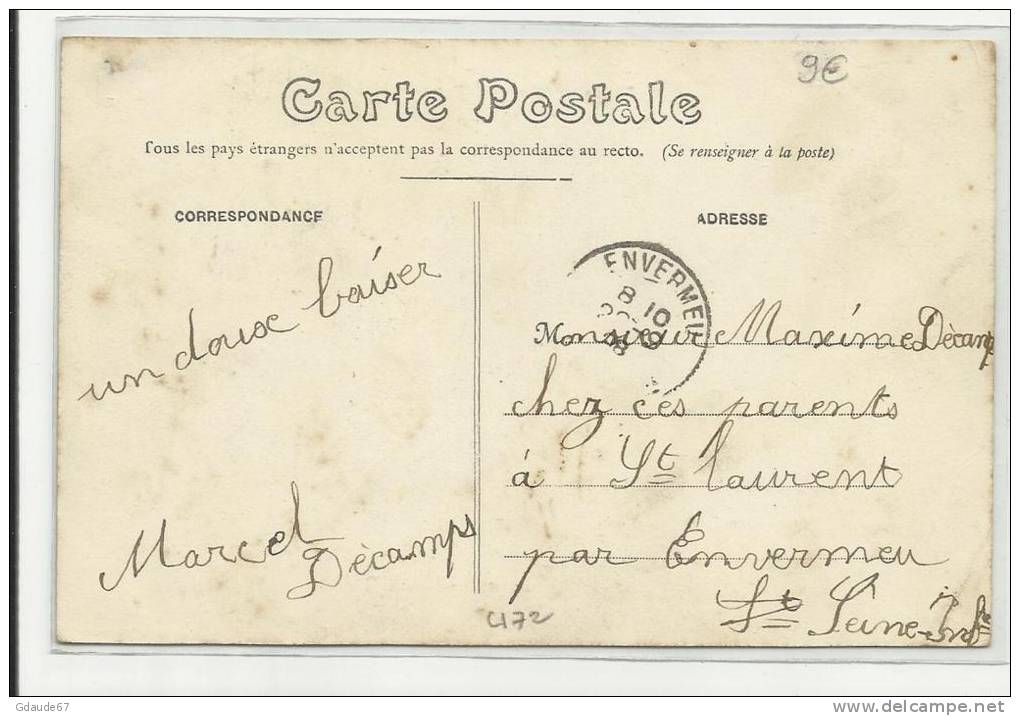 9€
Carte Postale
Tous les pays étrangers n'acceptent pas la correspondance au recto. (Se renseigner à la poste)
CORRESPONDANCE
un doux baiser
Marcel
Dècamps
ADRESSE
ENVERMEU
8 10
Monsieur Maxime Dècamp
chez ces parents
à St laurent
par Envermeu
St Seine-Infre
4172
Gdaude67